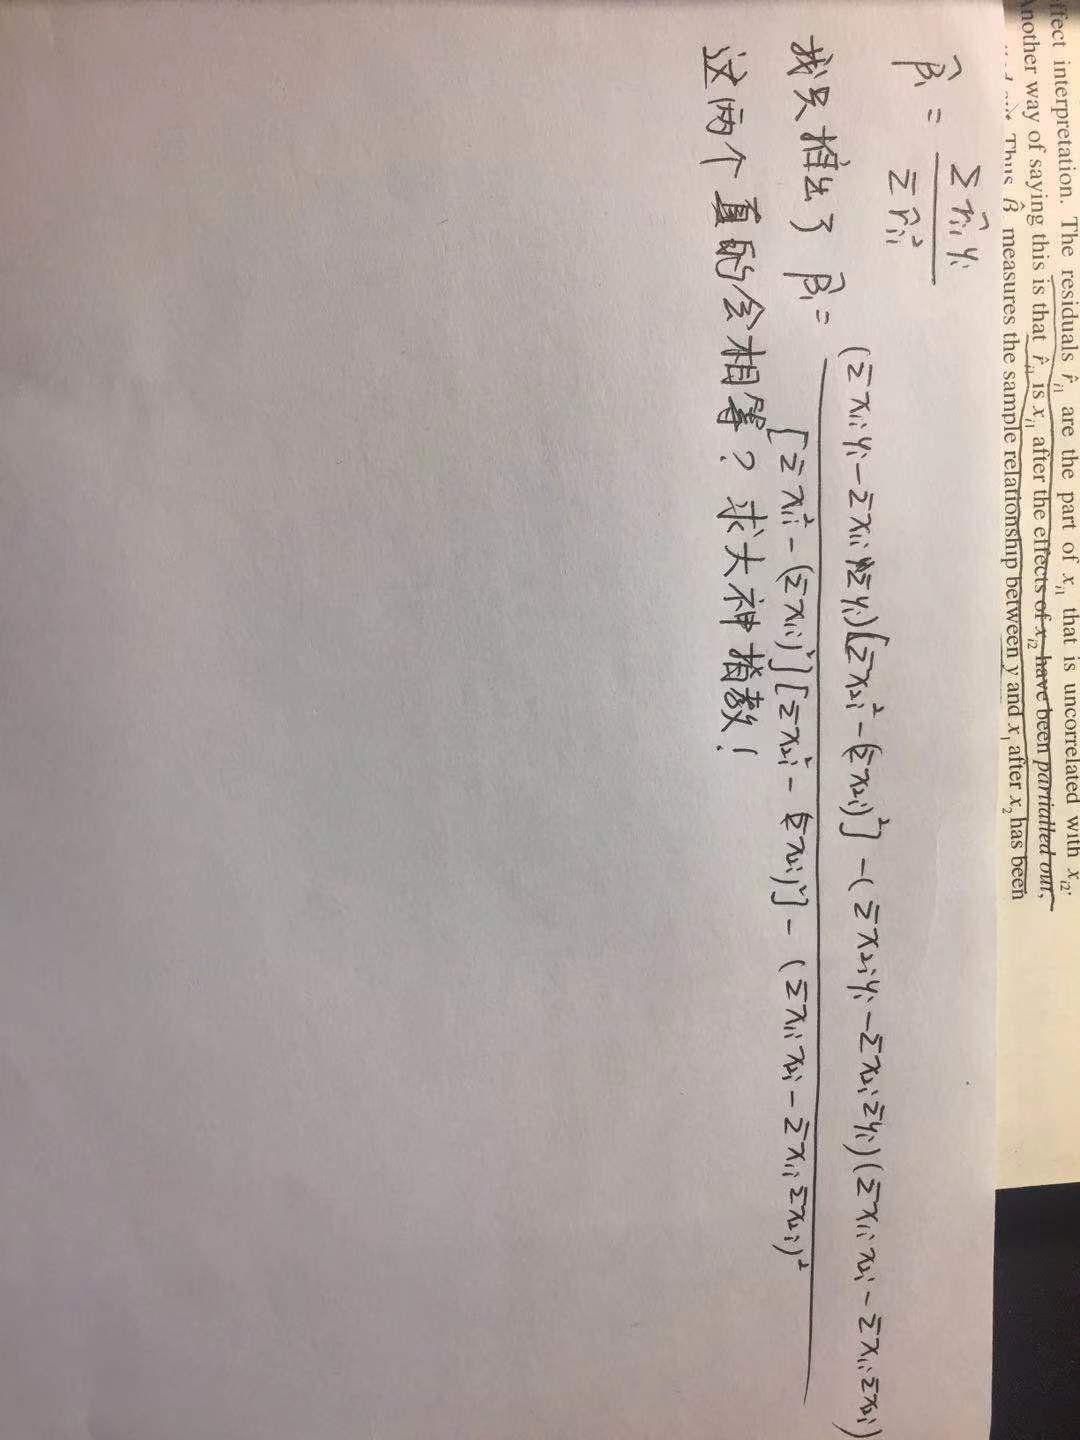 ffect interpretation. The residuals r̂ᵢ₁ are the part of xᵢ₁ that is uncorrelated with xᵢ₂.
Another way of saying this is that r̂ᵢ₁ is xᵢ₁ after the effects of xᵢ₂ have been partialled out,
Thus β̂ measures the sample relationship between y and x₁ after x₂ has been
β̂₁ = Σr̂ᵢ₁yᵢ / Σr̂ᵢ₁²
我只推出了 β̂₁ = (Σx₁ᵢyᵢ − Σx₁ᵢΣyᵢ)[Σx₂ᵢ² − (Σx₂ᵢ)²] − (Σx₂ᵢyᵢ − Σx₂ᵢΣyᵢ)(Σx₁ᵢx₂ᵢ − Σx₁ᵢΣx₂ᵢ) / [Σx₁ᵢ² − (Σx₁ᵢ)²][Σx₂ᵢ² − (Σx₂ᵢ)²] − (Σx₁ᵢx₂ᵢ − Σx₁ᵢΣx₂ᵢ)²
这两个真的会相等？求大神指教！